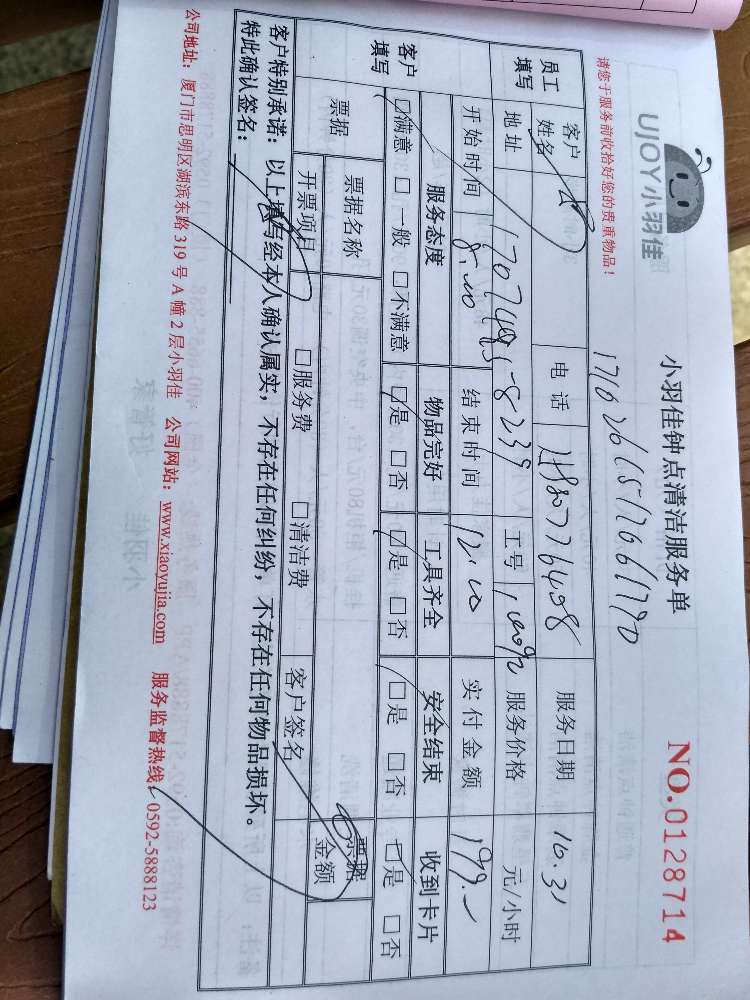 UJOY小羽佳
小羽佳钟点清洁服务单
NO.0128714
请您于服务前收拾好您的贵重物品！
员工填写
客户姓名 电话 服务日期 10.31
地址 工号 服务价格 元/小时
开始时间 8:00 结束时间 12:00 实付金额 199.-
客户填写
服务态度 物品完好 工具齐全 安全结束 收到卡片
☑满意 □一般 □不满意 ☑是 □否 ☑是 □否 ☑是 □否 ☑是 □否
票据 票据名称 票据金额
开票项目 □服务费 □清洁费 客户签名
客户特别承诺：以上填写经本人确认属实，不存在任何纠纷，不存在任何物品损坏。
特此确认签名：
公司地址：厦门市思明区湖滨东路319号A幢2层小羽佳 公司网站：www.xiaoyujia.com 服务监督热线：0592-5888123